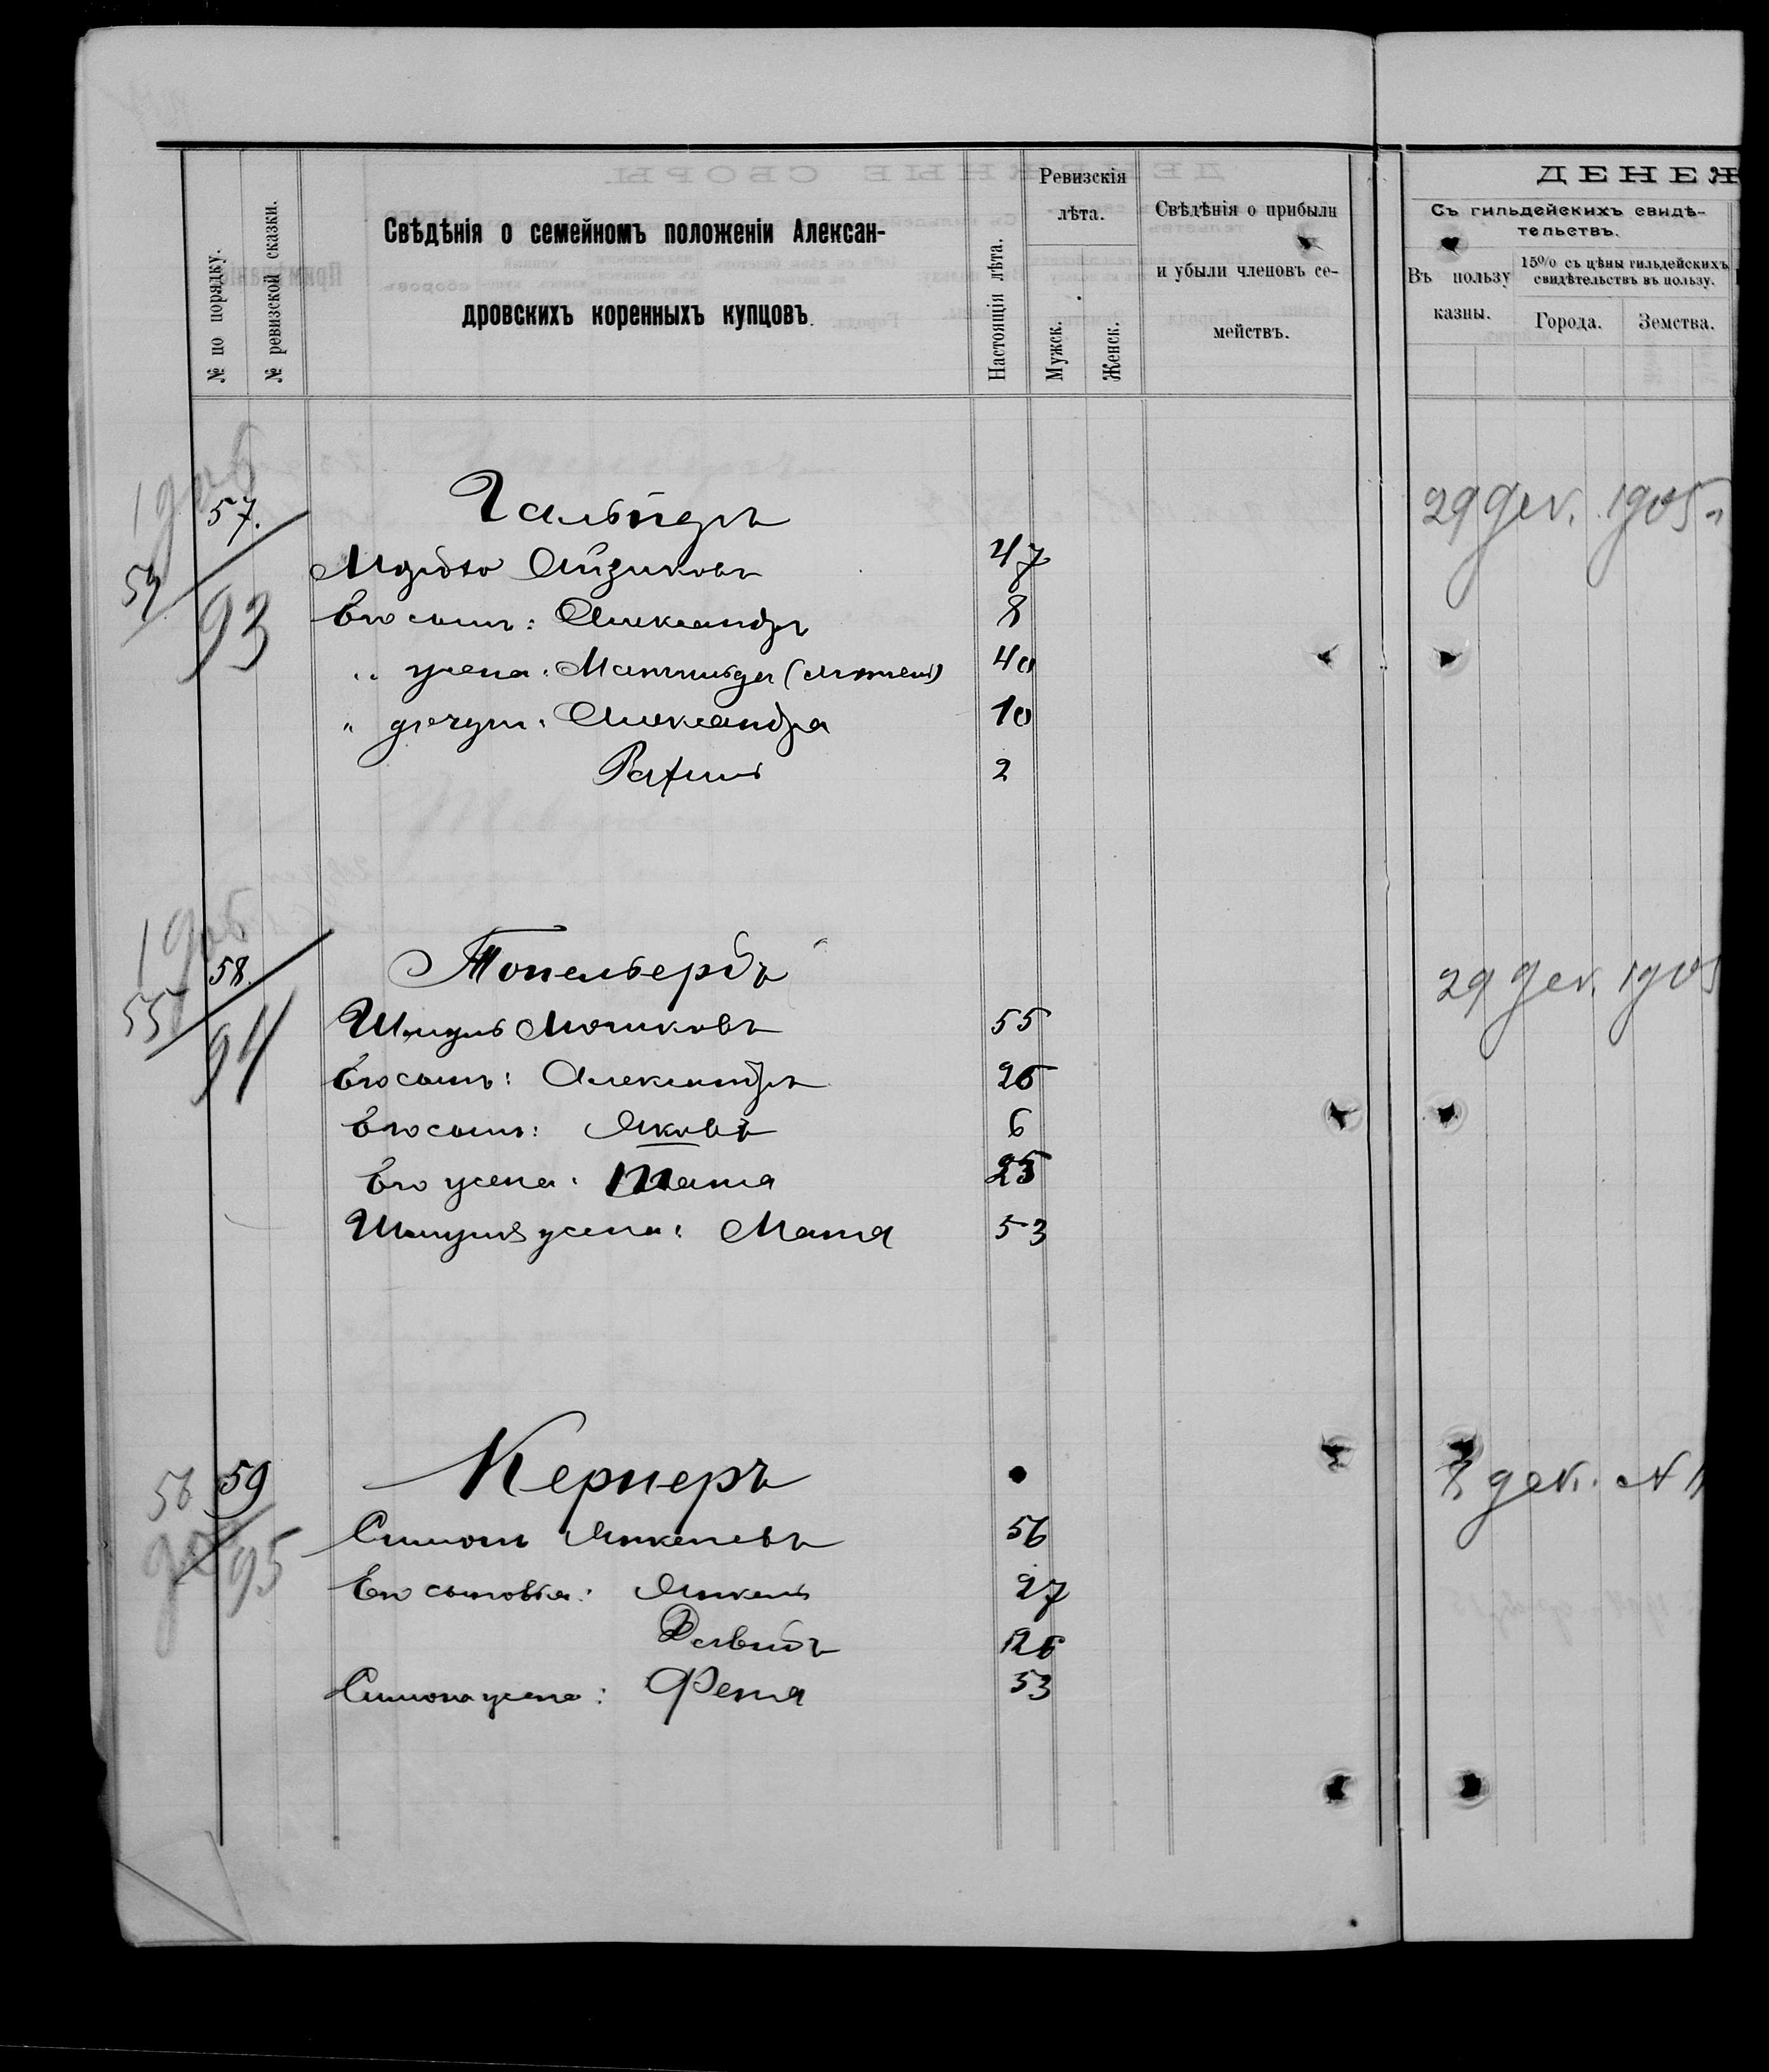 ДЕНЕЖ
№ по порядку.
№ ревизской сказки.
Свѣдѣнія о семейномъ положеніи Алексан-
дровскихъ коренныхъ купцовъ.
Настоящія лѣта.
Ревизскія
лѣта.
Мужск.
Женск.
Свѣдѣнія о прибыли
и убыли членовъ се-
мействъ.
Съ гильдейскихъ свидѣ-
тельствъ.
Въ пользу
казны.
15% съ цѣны гильдейскихъ
свидѣтельствъ въ пользу.
Города.
Земства.
57. 29 дек. 1905
93
Айзиковъ 47
Его сынъ: Александръ 8
„ жена: Матильда 40
„ дочери: Александра 10
Рахиль 2
1906
58. Топельбергъ 29 дек. 1905
55
94
Шмуль Мошковъ 55
Его сынъ: Александръ 26
Его сынъ: Яковъ 6
Его жена: 25
Шмуля жена: Маня 53
56 59 Кернеръ дек. N
95
Симонъ Янкелевъ 56
Его сыновья: Янкель 27
Давидъ 26
Симона жена: Феня 53